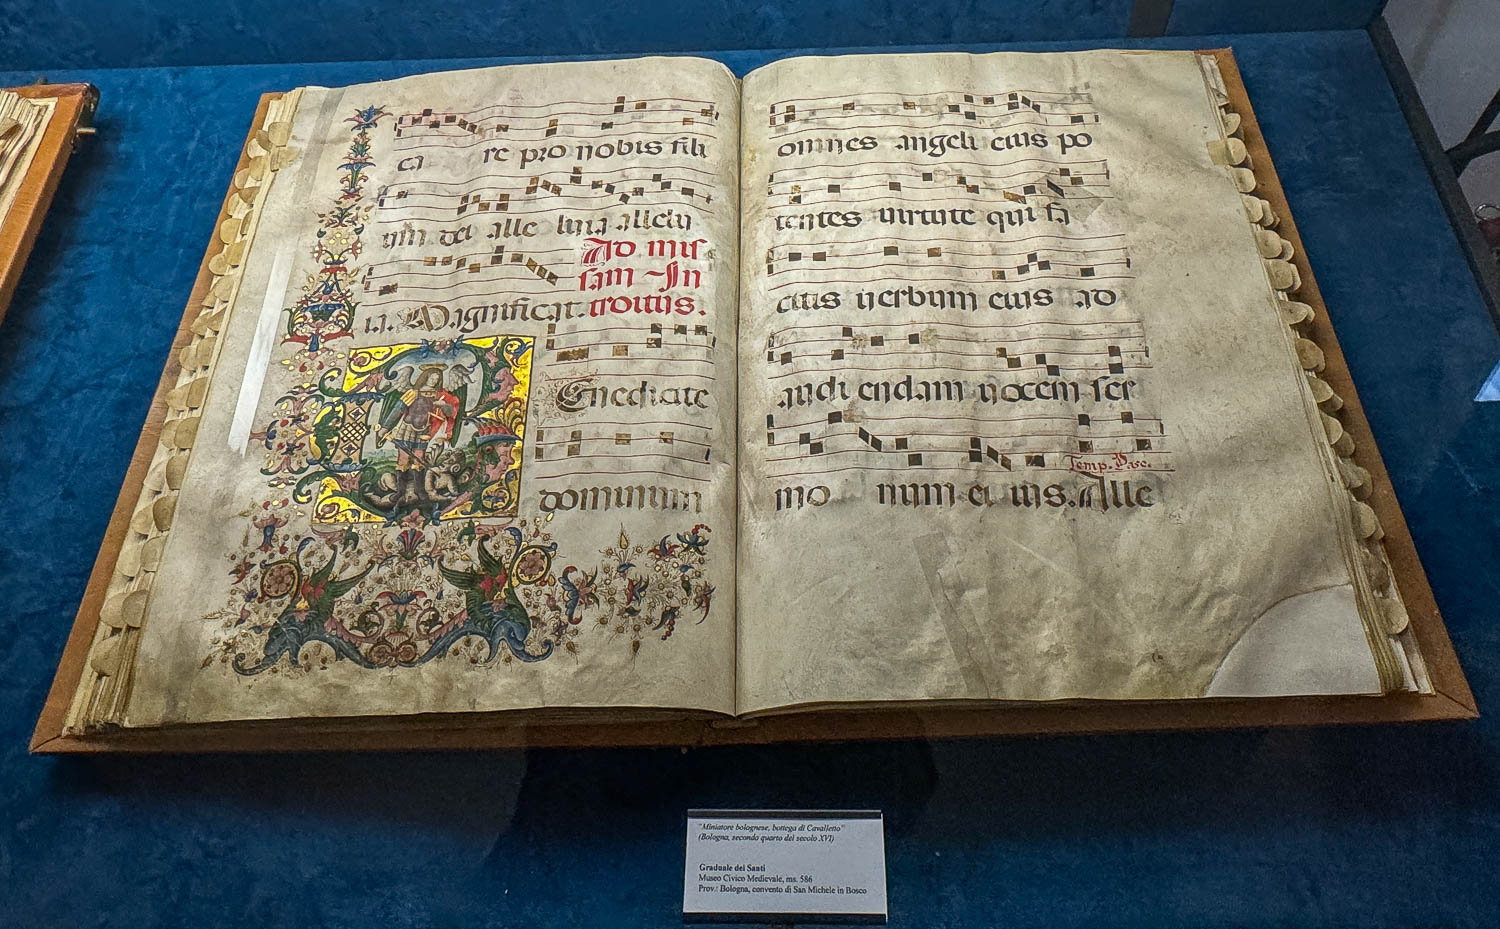 ca re pro nobis fili
um dei alle luia allelu
Ad mis
sam In
ia. Magnificat. troitus.
BEnedicite
dominum
omnes angeli eius po
tentes uirtute qui fa
citis uerbum eius ad
audi endam uocem ser
Temp. Pasc.
mo num ei us. Alle
"Miniatore bolognese, bottega di Cavalletto"
(Bologna, secondo quarto del secolo XVI)
Graduale dei Santi
Museo Civico Medievale, ms. 586
Prov.: Bologna, convento di San Michele in Bosco